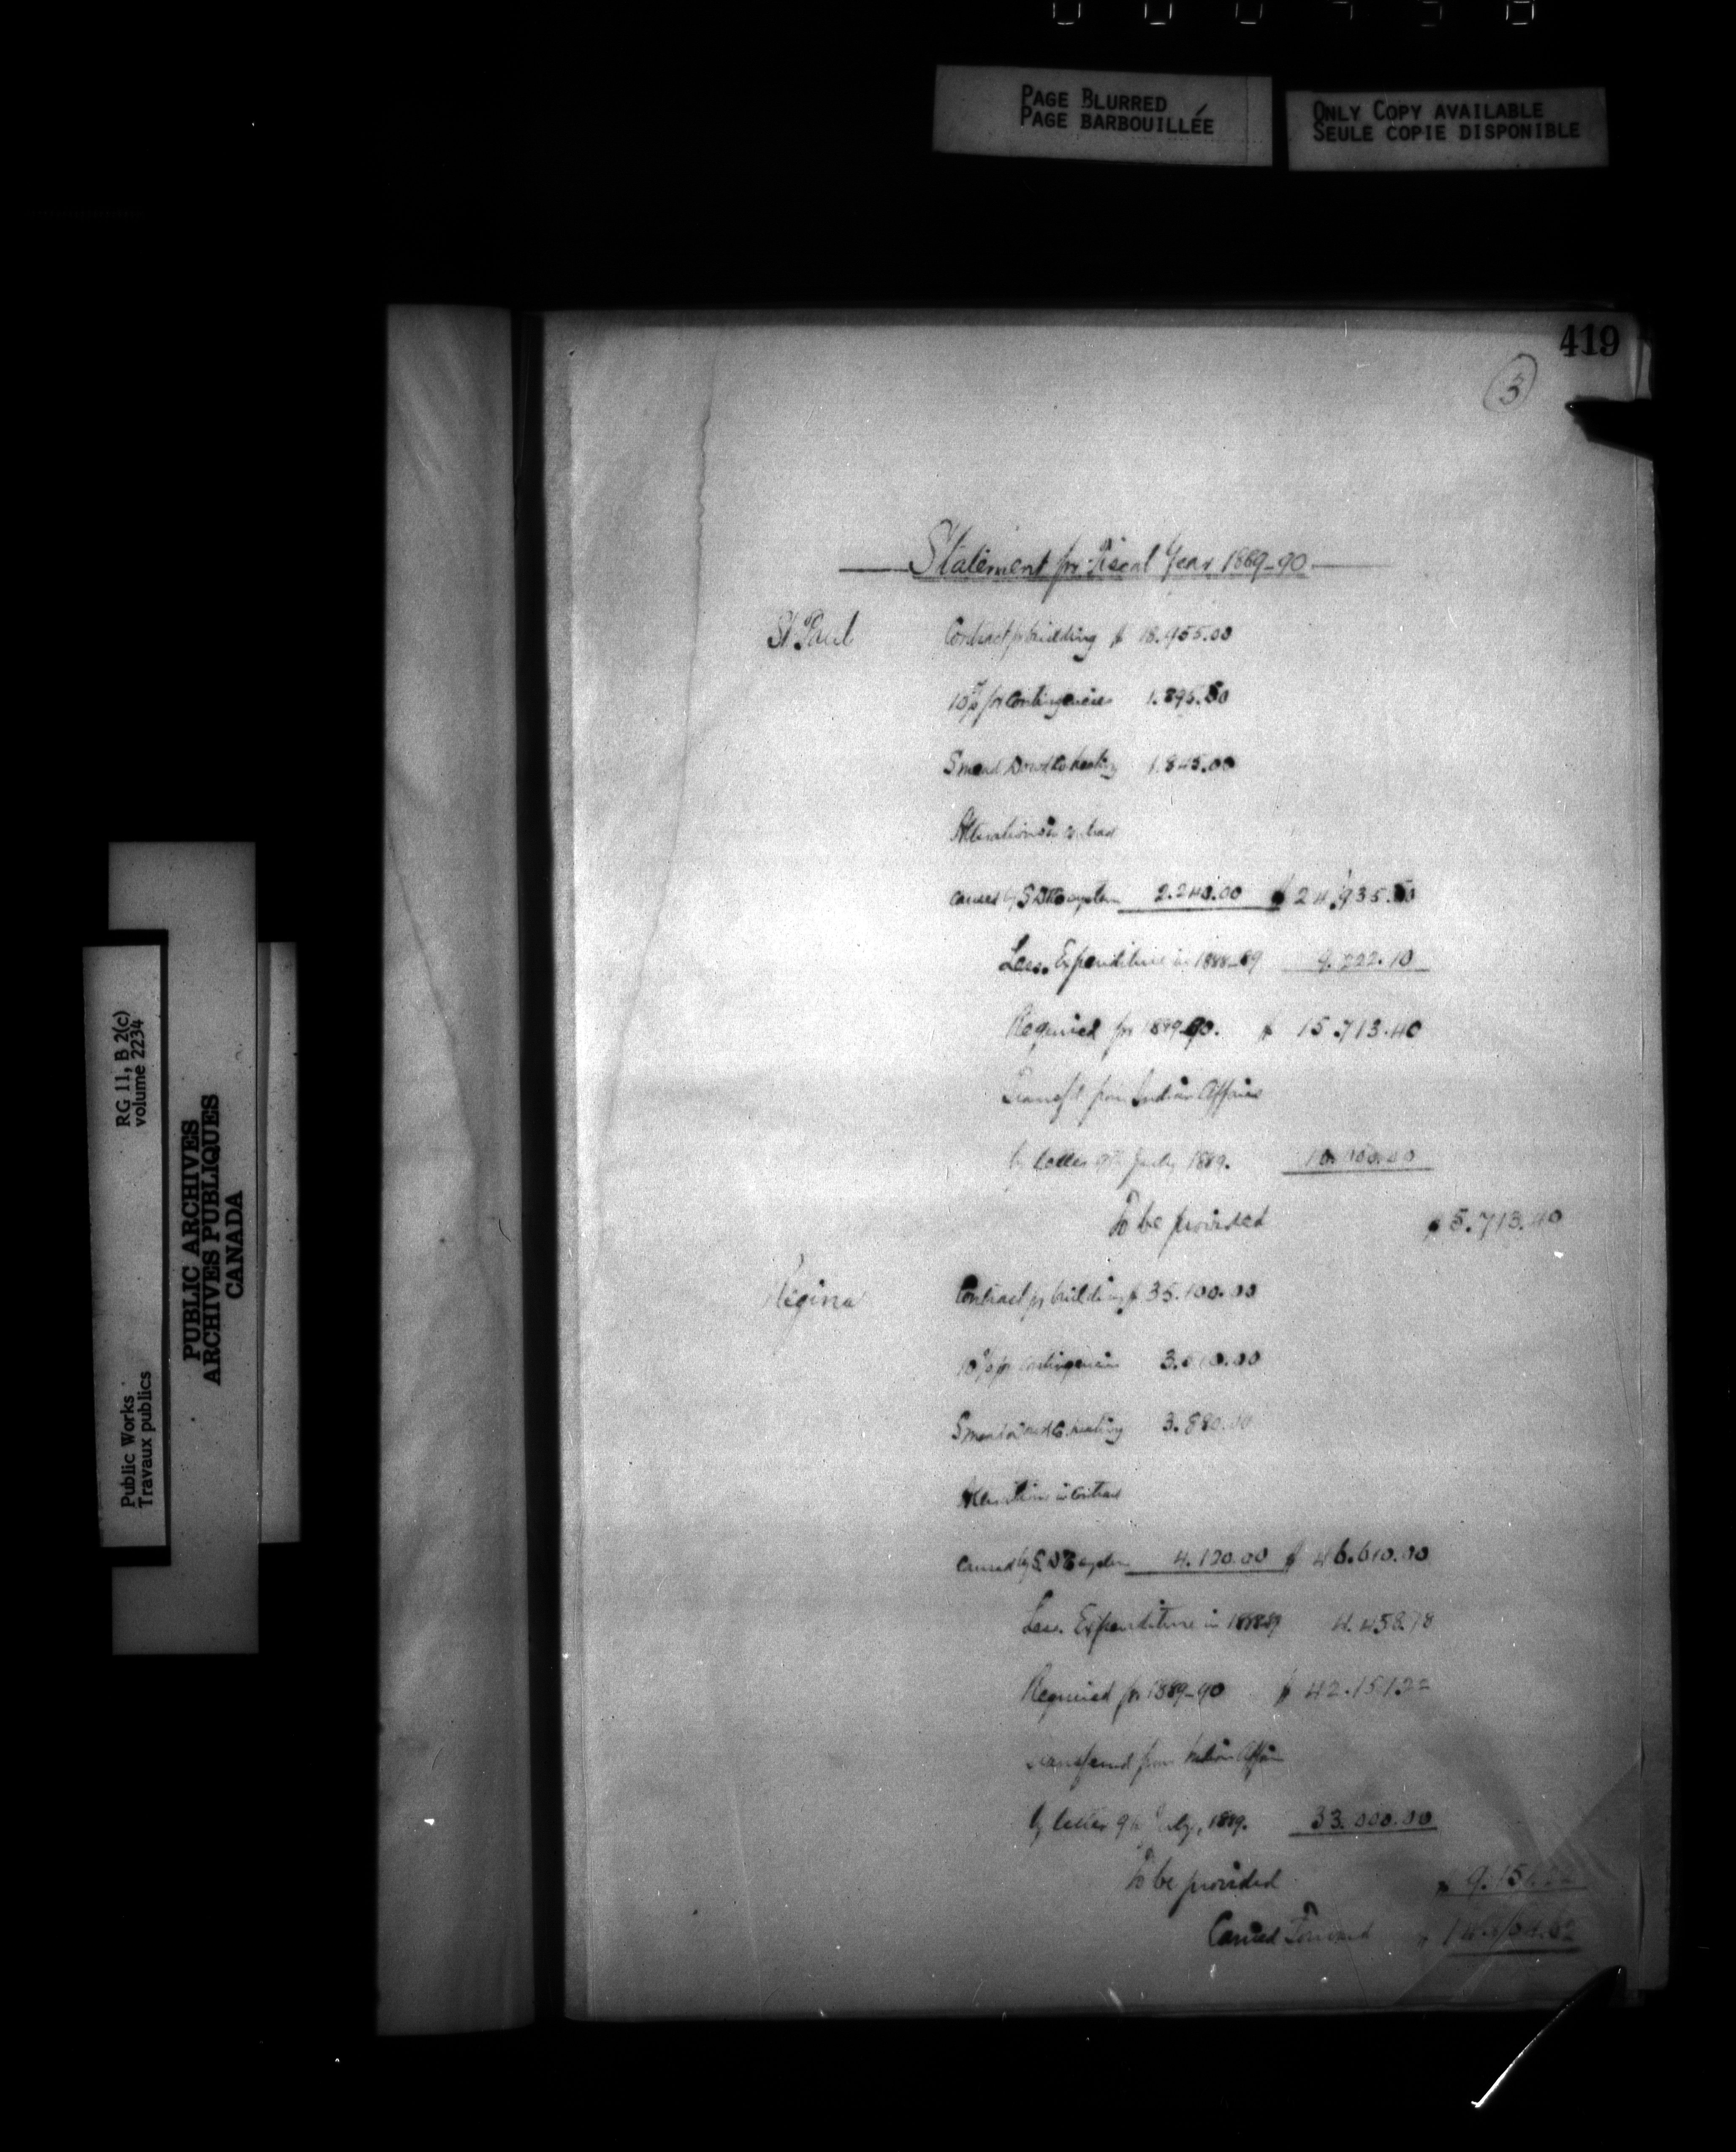 PAGE BLURRED
PAGE BARBOUILLÉE
ONLY COPY AVAILABLE
SEULE COPIE DISPONIBLE
419
3
Statement for Fiscal Year 1889-90
St. Paul Contract for building $ 18.955.00
10% for Contingencies 1.895.50
Smead Dowd & Co heating 1.845.00
Alterations in contract
caused by S D & Co system 2.240.00 $ 24.935.50
Less. Expenditure in 1888-89 9.222.10
Required for 1889-90. $ 15.713.40
Transfd from Indian Affairs
by letter 9th July 1889. 10.000.00
To be provided $ 5.713.40
Regina Contract for building $ 35.100.00
10% for Contingencies 3.510.00
Smead Dowd & Co heating 3.880.00
Alterations in Contract
caused by S. D & C system 4.120.00 $ 46.610.00
Less. Expenditure in 1888-89 4.458.78
Required for 1889-90 $ 42.151.22
Transferred from Indian Affairs
by letter 9th July, 1889. 33.000.00
To be provided $ 9.151.22
Carried Forward $ 14.864.62
RG 11, B 2(c)
volume 2234
Public Works
Travaux publics
PUBLIC ARCHIVES
ARCHIVES PUBLIQUES
CANADA